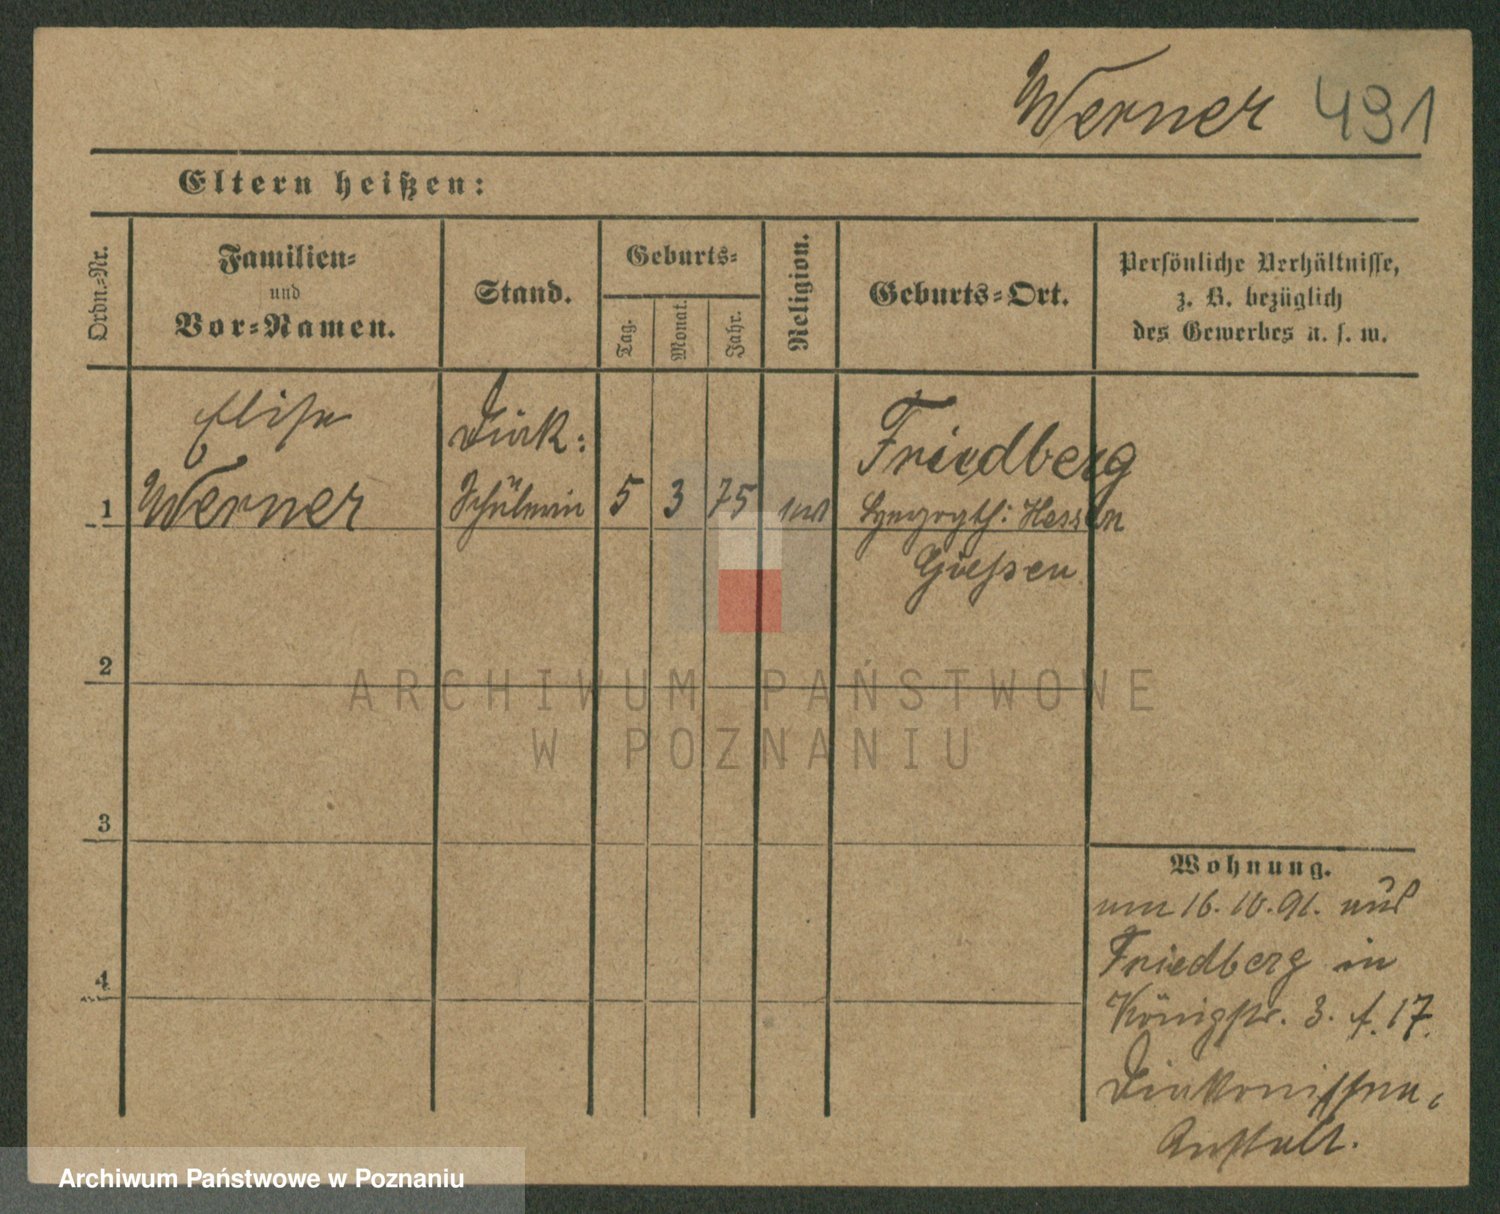 Werner 491
Eltern heißen:
Ordn.-Nr.
Familien-
und
Vor-Namen.
Stand.
Geburts-
Tag.
Monat.
Jahr.
Religion.
Geburts-Ort.
Persönliche Verhältnisse,
z. B. bezüglich
des Gewerbes u. s. w.
Elise
Werner
Diak:
Schülerin
1
5
3
75
Friedberg
Hessen
Giessen
2
3
4
ARCHIWUM PAŃSTWOWE
W POZNANIU
Wohnung.
am 16.10.91. aus
Friedberg in
Königstr. 3. 17.
Diakonissen-
Anstalt.
Archiwum Państwowe w Poznaniu